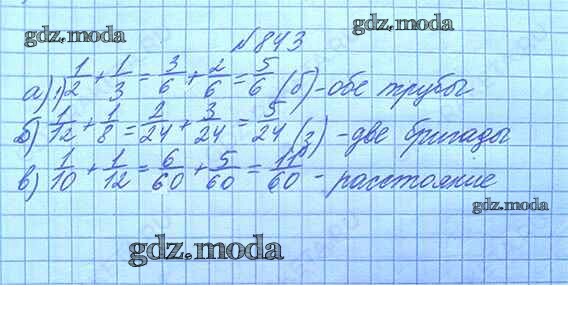 gdz.moda
№843
gdz.moda
а) 1) 1/2 + 1/3 = 3/6 + 2/6 = 5/6 (б) - обе трубы
б) 1/12 + 1/8 = 2/24 + 3/24 = 5/24 (з) - две бригады
в) 1/10 + 1/12 = 6/60 + 5/60 = 11/60 - расстояние
gdz.moda
gdz.moda